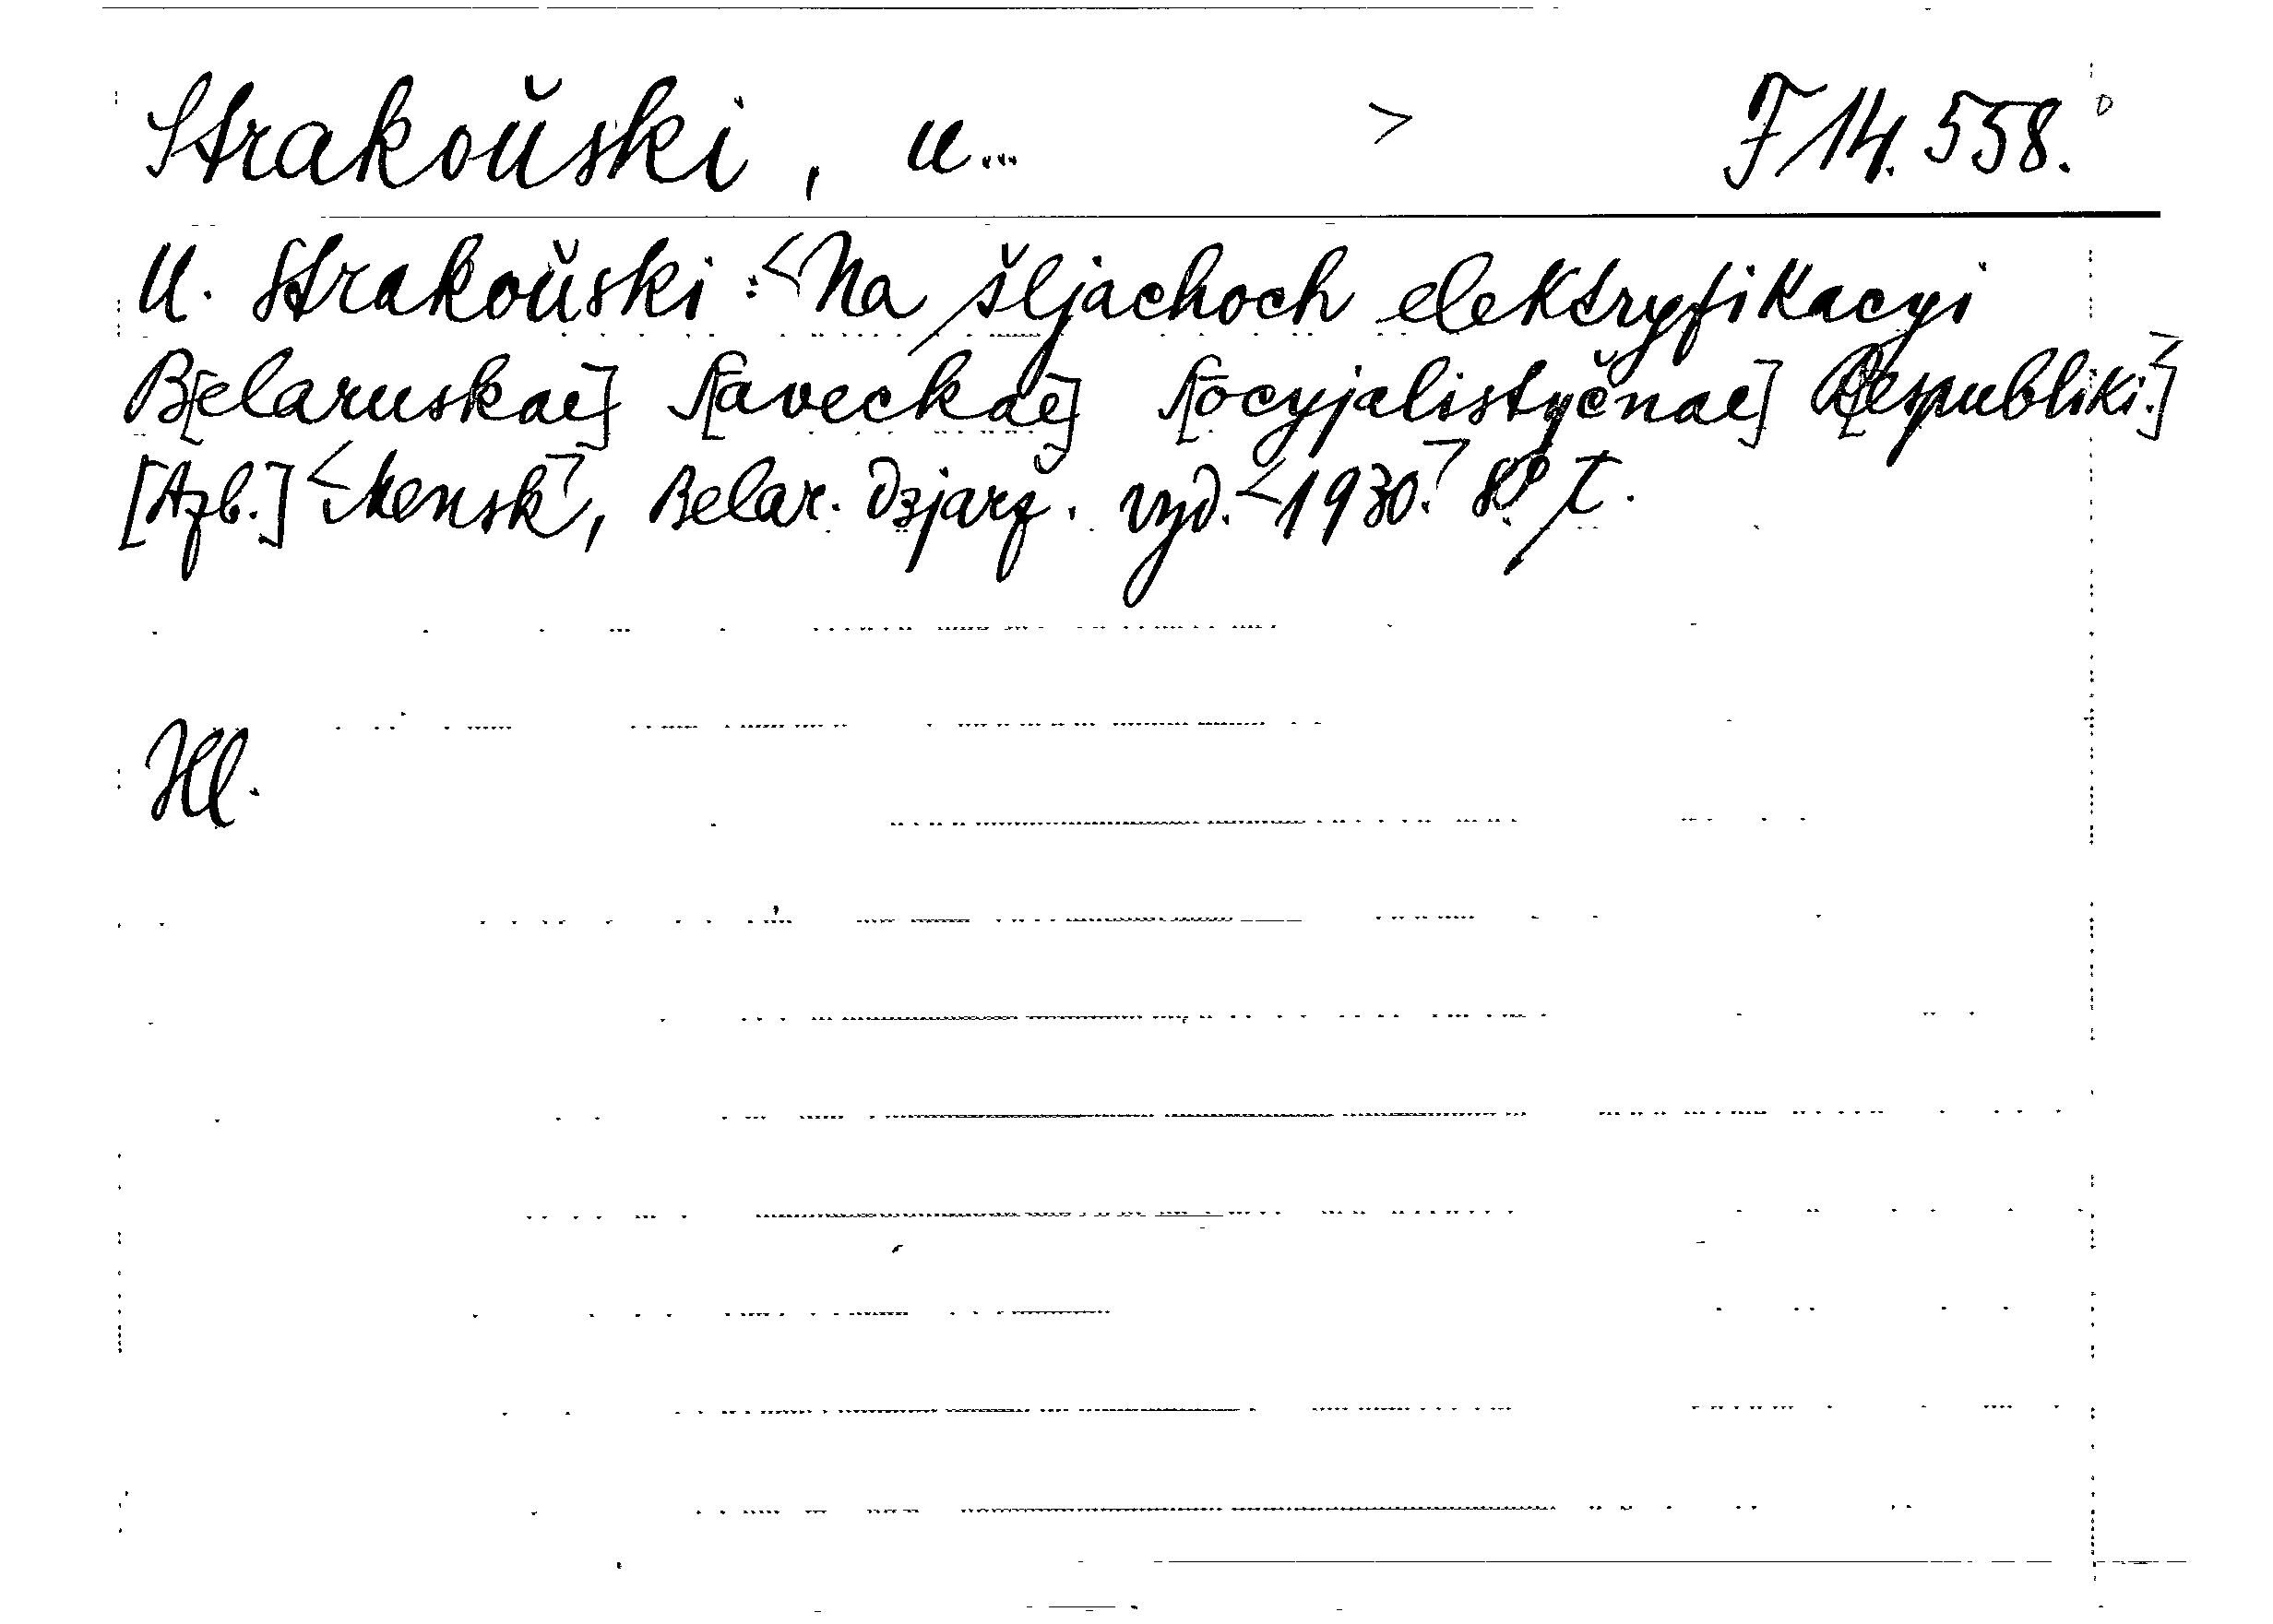 Strakoŭski, U... > F 14.558.
U. Strakoŭski: <Na šljachoch elektryfikacyi
B[elaruskae] S[aveckaě] S[ocyjalistyčnae] R[espubliki.]>
[Azb.] <Mensk>, Belar. dzjarž. vyd. <1930.> 8° T.
Hl.